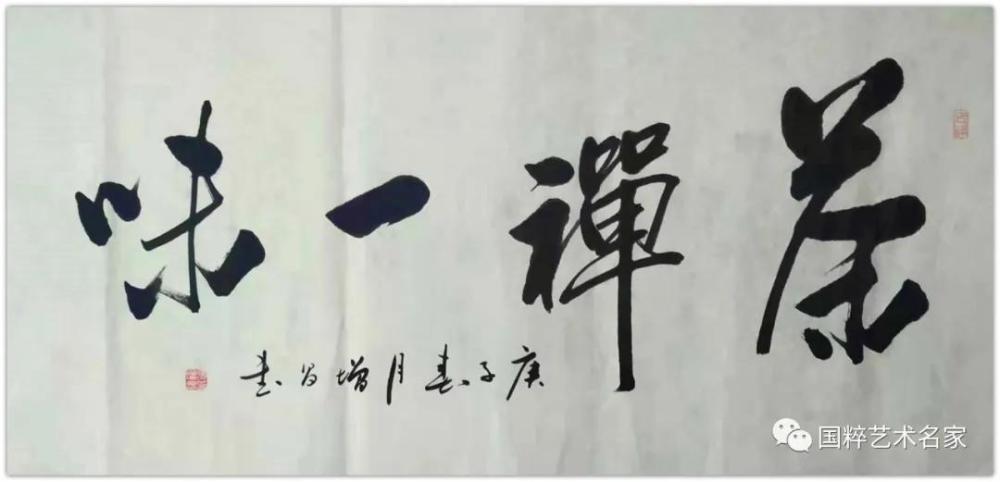 茶禪一味
庚子春月增昌書
国粹艺术名家